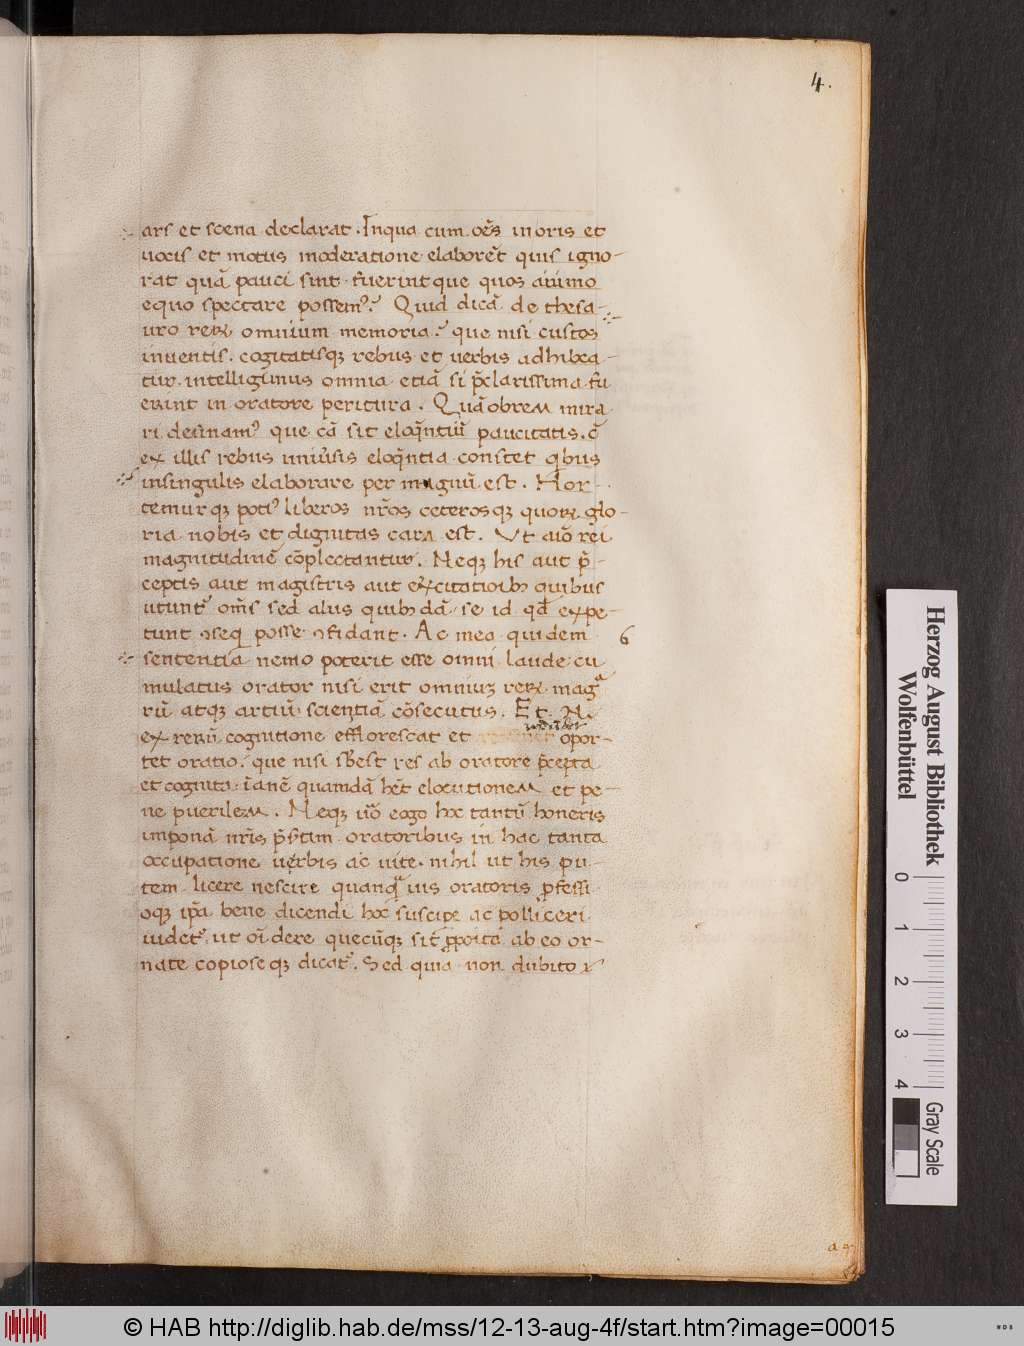 4.
ars et scena declarat. Inqua cum oēs in oris et
uocis et motus moderatione elaborēt quis igno-
rat quā pauci sint fuerintque quos animo
equo spectare possemꝰ. Quid dicā de thesa-
uro reꝝ omnium memoria? que nisi custos
inuentis. cogitatisqꝫ rebus et uerbis adhibea-
tur. intelligimus omnia etiā si p̄clarissima fu
erint in oratore peritura. Quāobrem mira
ri desinamꝰ que cā sit eloq̄ntiū paucitatis. c̄
ex illis rebus uniūsis eloq̄ntia constet qbus
insingulis elaborare per magnū est. Hor-
temur qꝫ potiꝰ liberos nr̄os ceterosqꝫ quoꝝ glo-
ria nobis et dignitas cara est. Ut aīo rei
magnitudinē cōplectantur. Neqꝫ his aut p̄-
ceptis aut magistris aut exercitationibꝫ quibus
utuntꝰ om̄s sed alus quibꝫdā se id qd̄ expe-
tunt ꝯseq posse ꝯfidant. Ac mea quidem
6
sententia nemo poterit esse omni laude cu
mulatus orator nisi erit omniuꝫ reꝝ magᵃ
rū atqꝫ artiū scientiā cōsecutus. Et. N.
ex rerū cognitione efflorescat et oportet
redundet
tet oratio. que nisi sb̄est res ab oratore p̄cepta
et cognita. īanē quamdā hēt elocutionem et pe-
ne puerilem. Neqꝫ uō ego hoc tantū honeris
imponā nr̄is p̄s̄tim oratoribus in hac tanta
occupatione uerbis ac uite. nihil ut his pu-
tem licere nescire quanqᵃ uis oratoris ꝓfessi
oqꝫ ip̄a bene dicendi hoc suscipe ac polliceri
uidetꝰ ut oī dere quecūqꝫ sit ꝓposita ab eo or-
nate copioseqꝫ dicatꝰ. Sed quia non dubito
Herzog August Bibliothek
Wolfenbüttel
0 1 2 3 4
Gray Scale
© HAB http://diglib.hab.de/mss/12-13-aug-4f/start.htm?image=00015